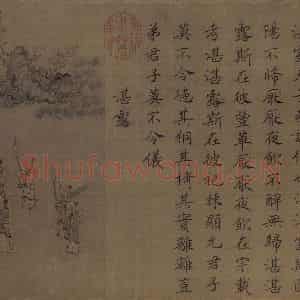 陽不晞厭厭夜飲不醉無歸湛湛
露斯在彼豐草厭厭夜飲在宗載
考湛湛露斯在彼杞棘顯允君子
莫不令德其桐其椅其實離離豈
弟君子莫不令儀
湛露
Shufawang.CN